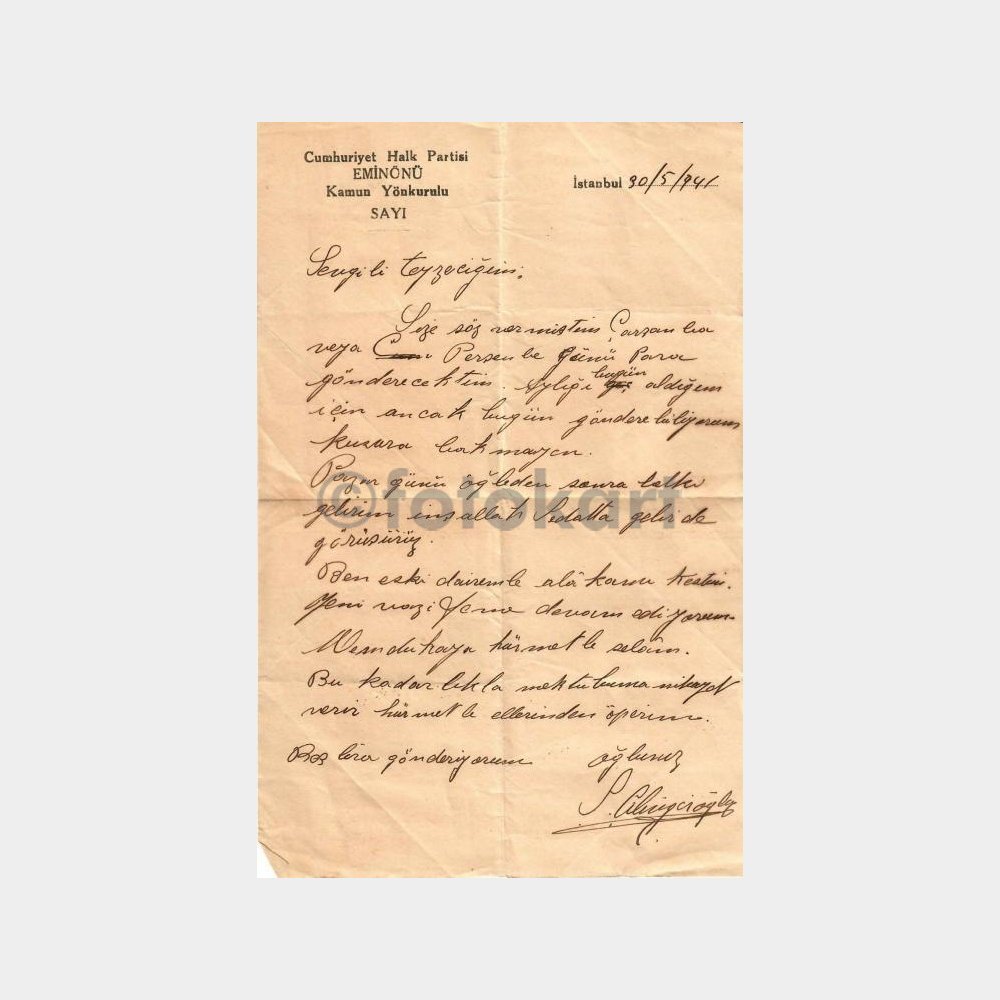 Cumhuriyet Halk Partisi
EMİNÖNÜ
Kamun Yönkurulu
SAYI
İstanbul 30/5/941
Sevgili teyzeciğim.
Size söz vermiştim Çarşanba
veya Perşenbe günü Para
gönderecektim. Aylığı bugün aldığım
için ancak bugün gönderebiliyorum
kusura bakmayın.
Pazar günü öğleden sonra belki
gelirim inşallah Sedatta gelir de
görüşürüz.
Ben eski dairemle alâkamı kestim.
Yeni vazifeme devam ediyorum.
hürmetle selâm.
Bu kadarlıkla mektubuma nihayet
verir hürmetle ellerinden öperim.
Beş lira gönderiyorum
oğlunuz
©fotokart